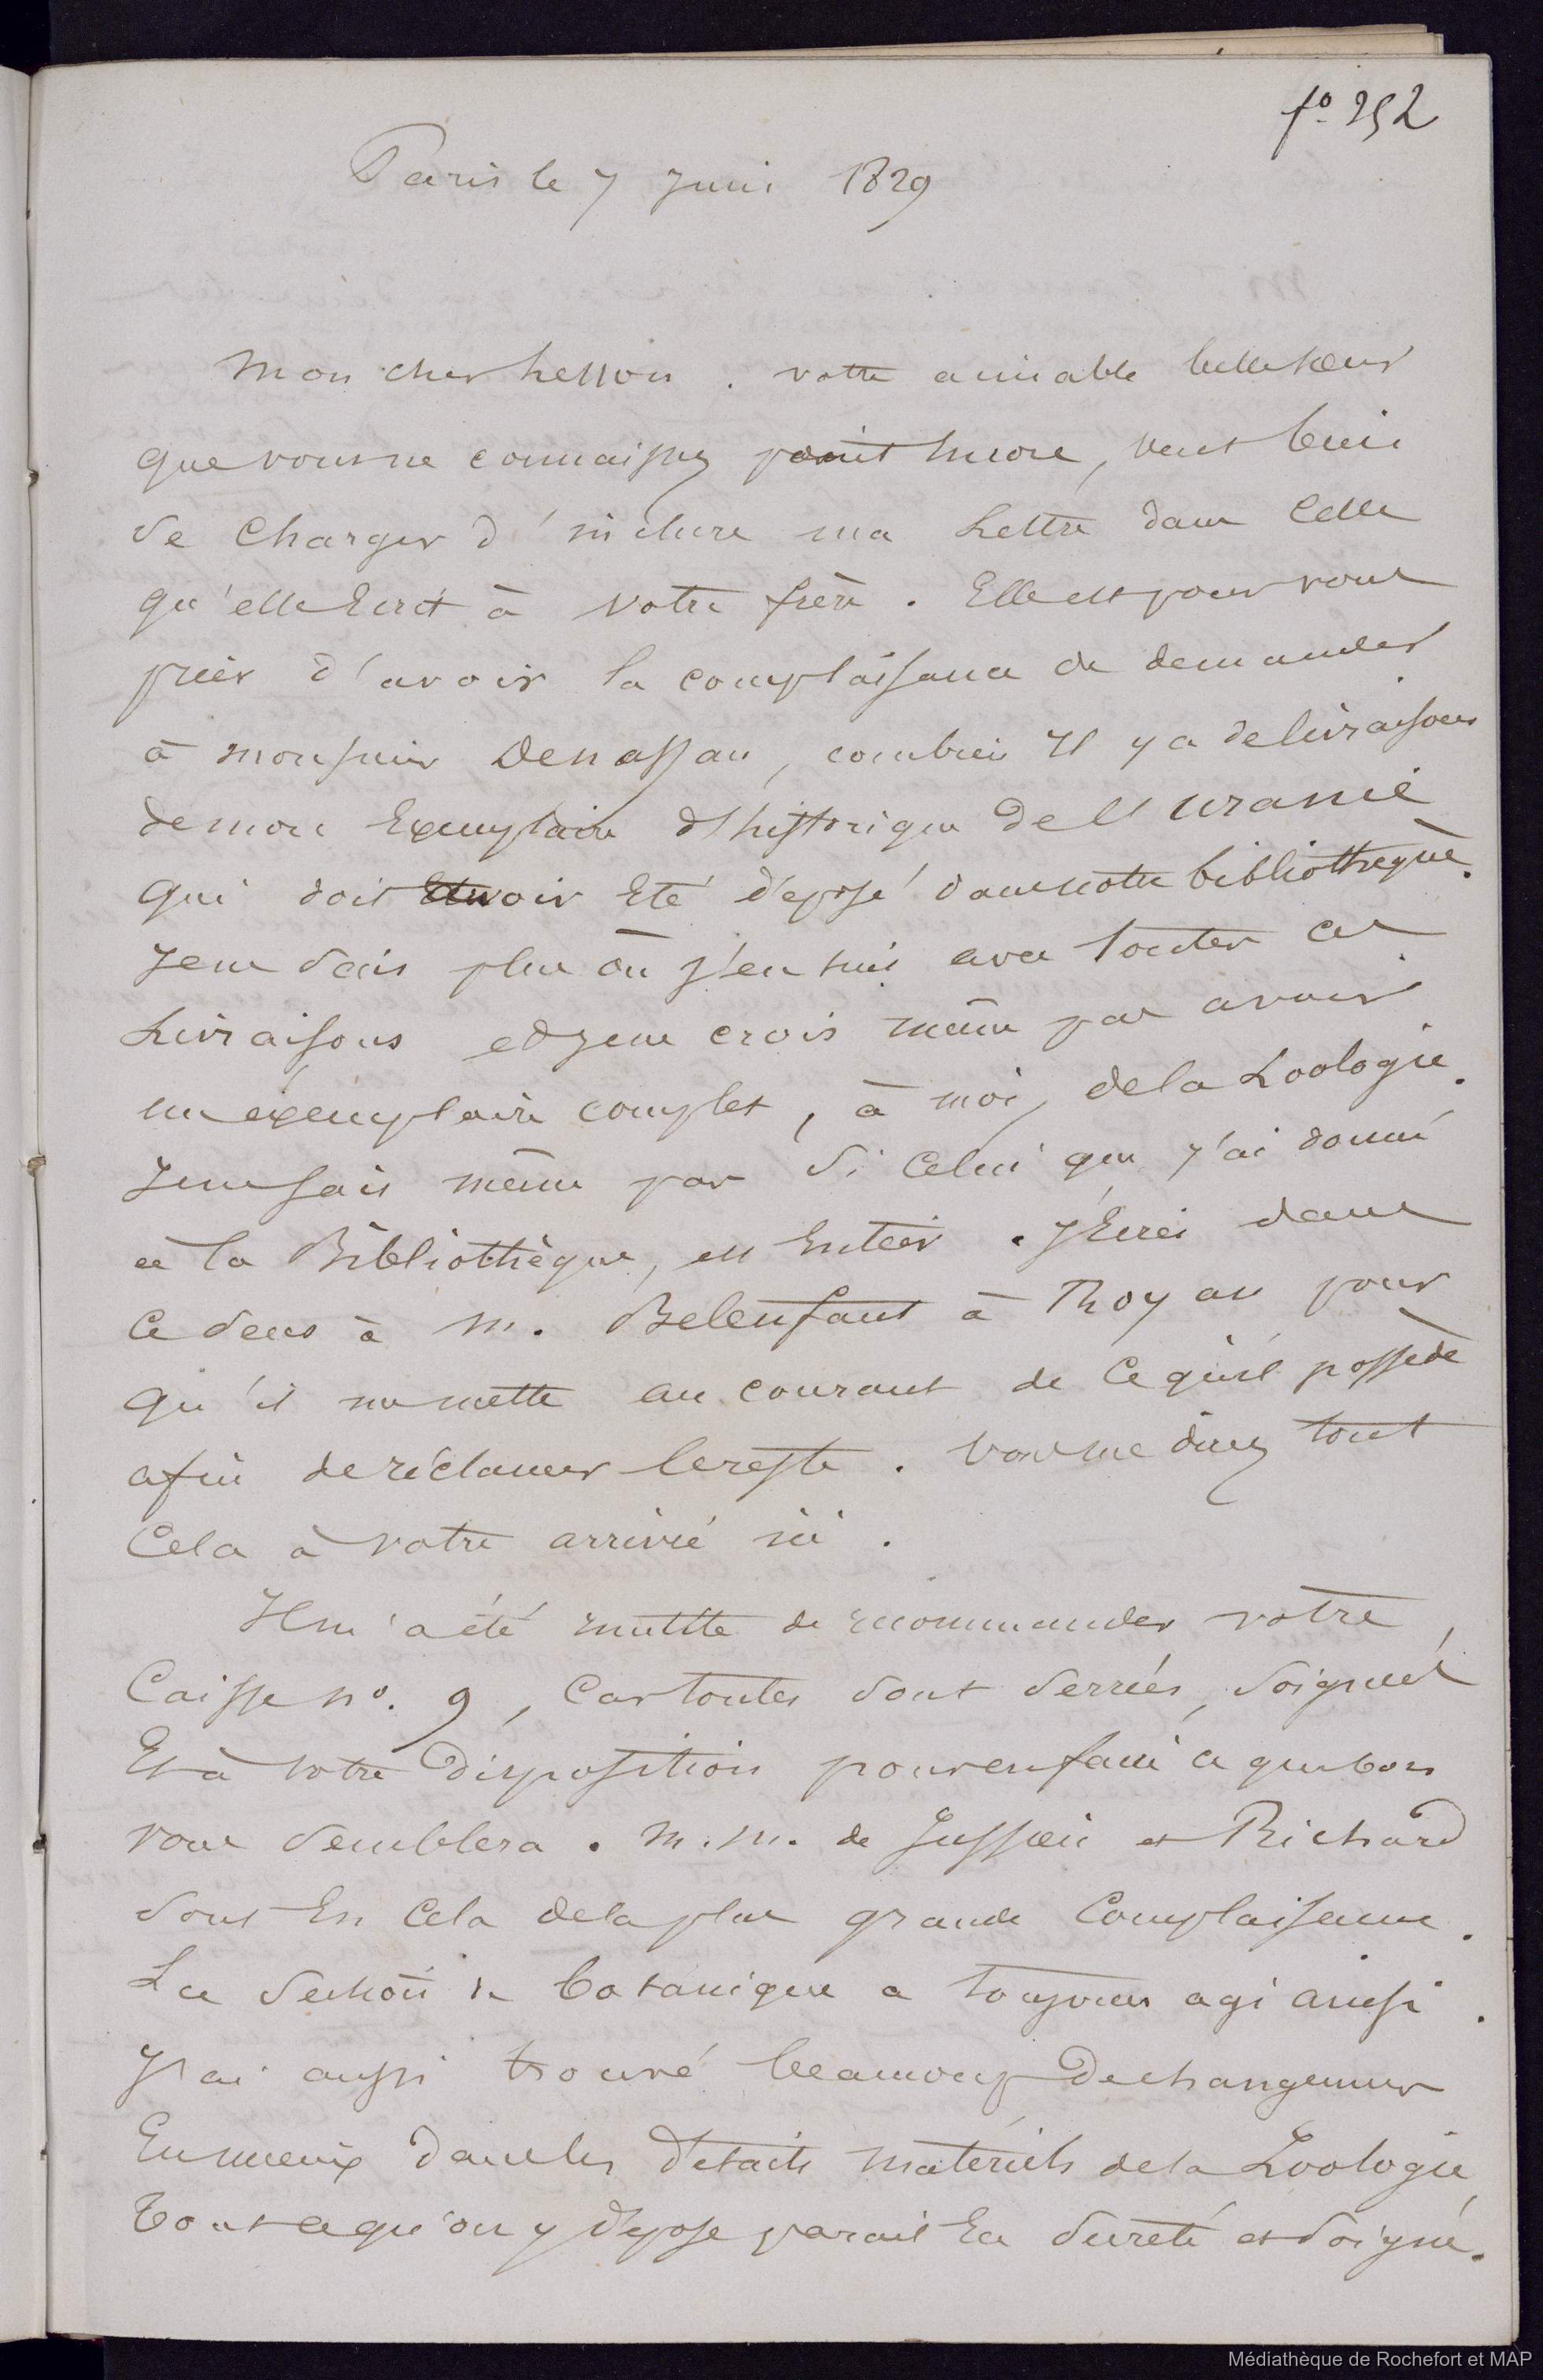 fº 252
Paris le 7 Juin 1829
Mon cher Lesson. votre aimable belle soeur
que vous ne connaissez point encore, veut bien
se charger d'inclure ma Lettre dans celle
qu'elle Ecrit à votre frère. Elle est pour vous
prier d'avoir la complaisance de demander
à monsieur Denassau, combien Il y a de livraisons
de mon Exemplaire d'historique de l'Uranie
qui doit avoir Eté déposé dans notre bibliothèque.
Je ne sais plus où j'en suis avec toutes ces
Livraisons et je ne crois même pas avoir
un exemplaire complet, à moi, de la Zoologie.
Je ne sais même pas si celui que j'ai donné
à la Bibliothèque, est Entier. J'Ecris dans
ce sens à M. Belenfant à Royan pour
qu'il me mette au courant de ce qu'il possède
afin de réclamer le reste. Vous me direz tout
cela à votre arrivée ici.
Il m'a été inutile de recommander votre
Caisse nº. 9, Car toutes sont serrées, soignées
Et à votre disposition pour en faire ce que bon
vous semblera. M. M. de Jussieu et Richard
sont En cela de la plus grande Complaisance.
La section de botanique a toujours agi ainsi.
J'ai aussi trouvé beaucoup de changemens
En mieux dans les détails matériels de la Zoologie,
Tout ce qu'on y dépose parait En sureté et soigné.
Médiathèque de Rochefort et MAP